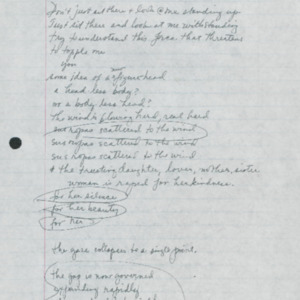 Don't just sit there + look @ me standing up
Just sit there and look at me withstanding
try to understand this force that threatens
to topple me
you
some idea of a head
a head less body?
or a body less head?
The wind is blowing hard, real hard
sus ropas scattered to the wind
sus ropas scattered to the wind
sus ropas scattered to the wind
the trusting daughter, lover, mother, sister
woman is raped for her kindness.
for her silence
for her beauty
for her
the gaze collapses to a single point.
the gap is now governed
expanding rapidly